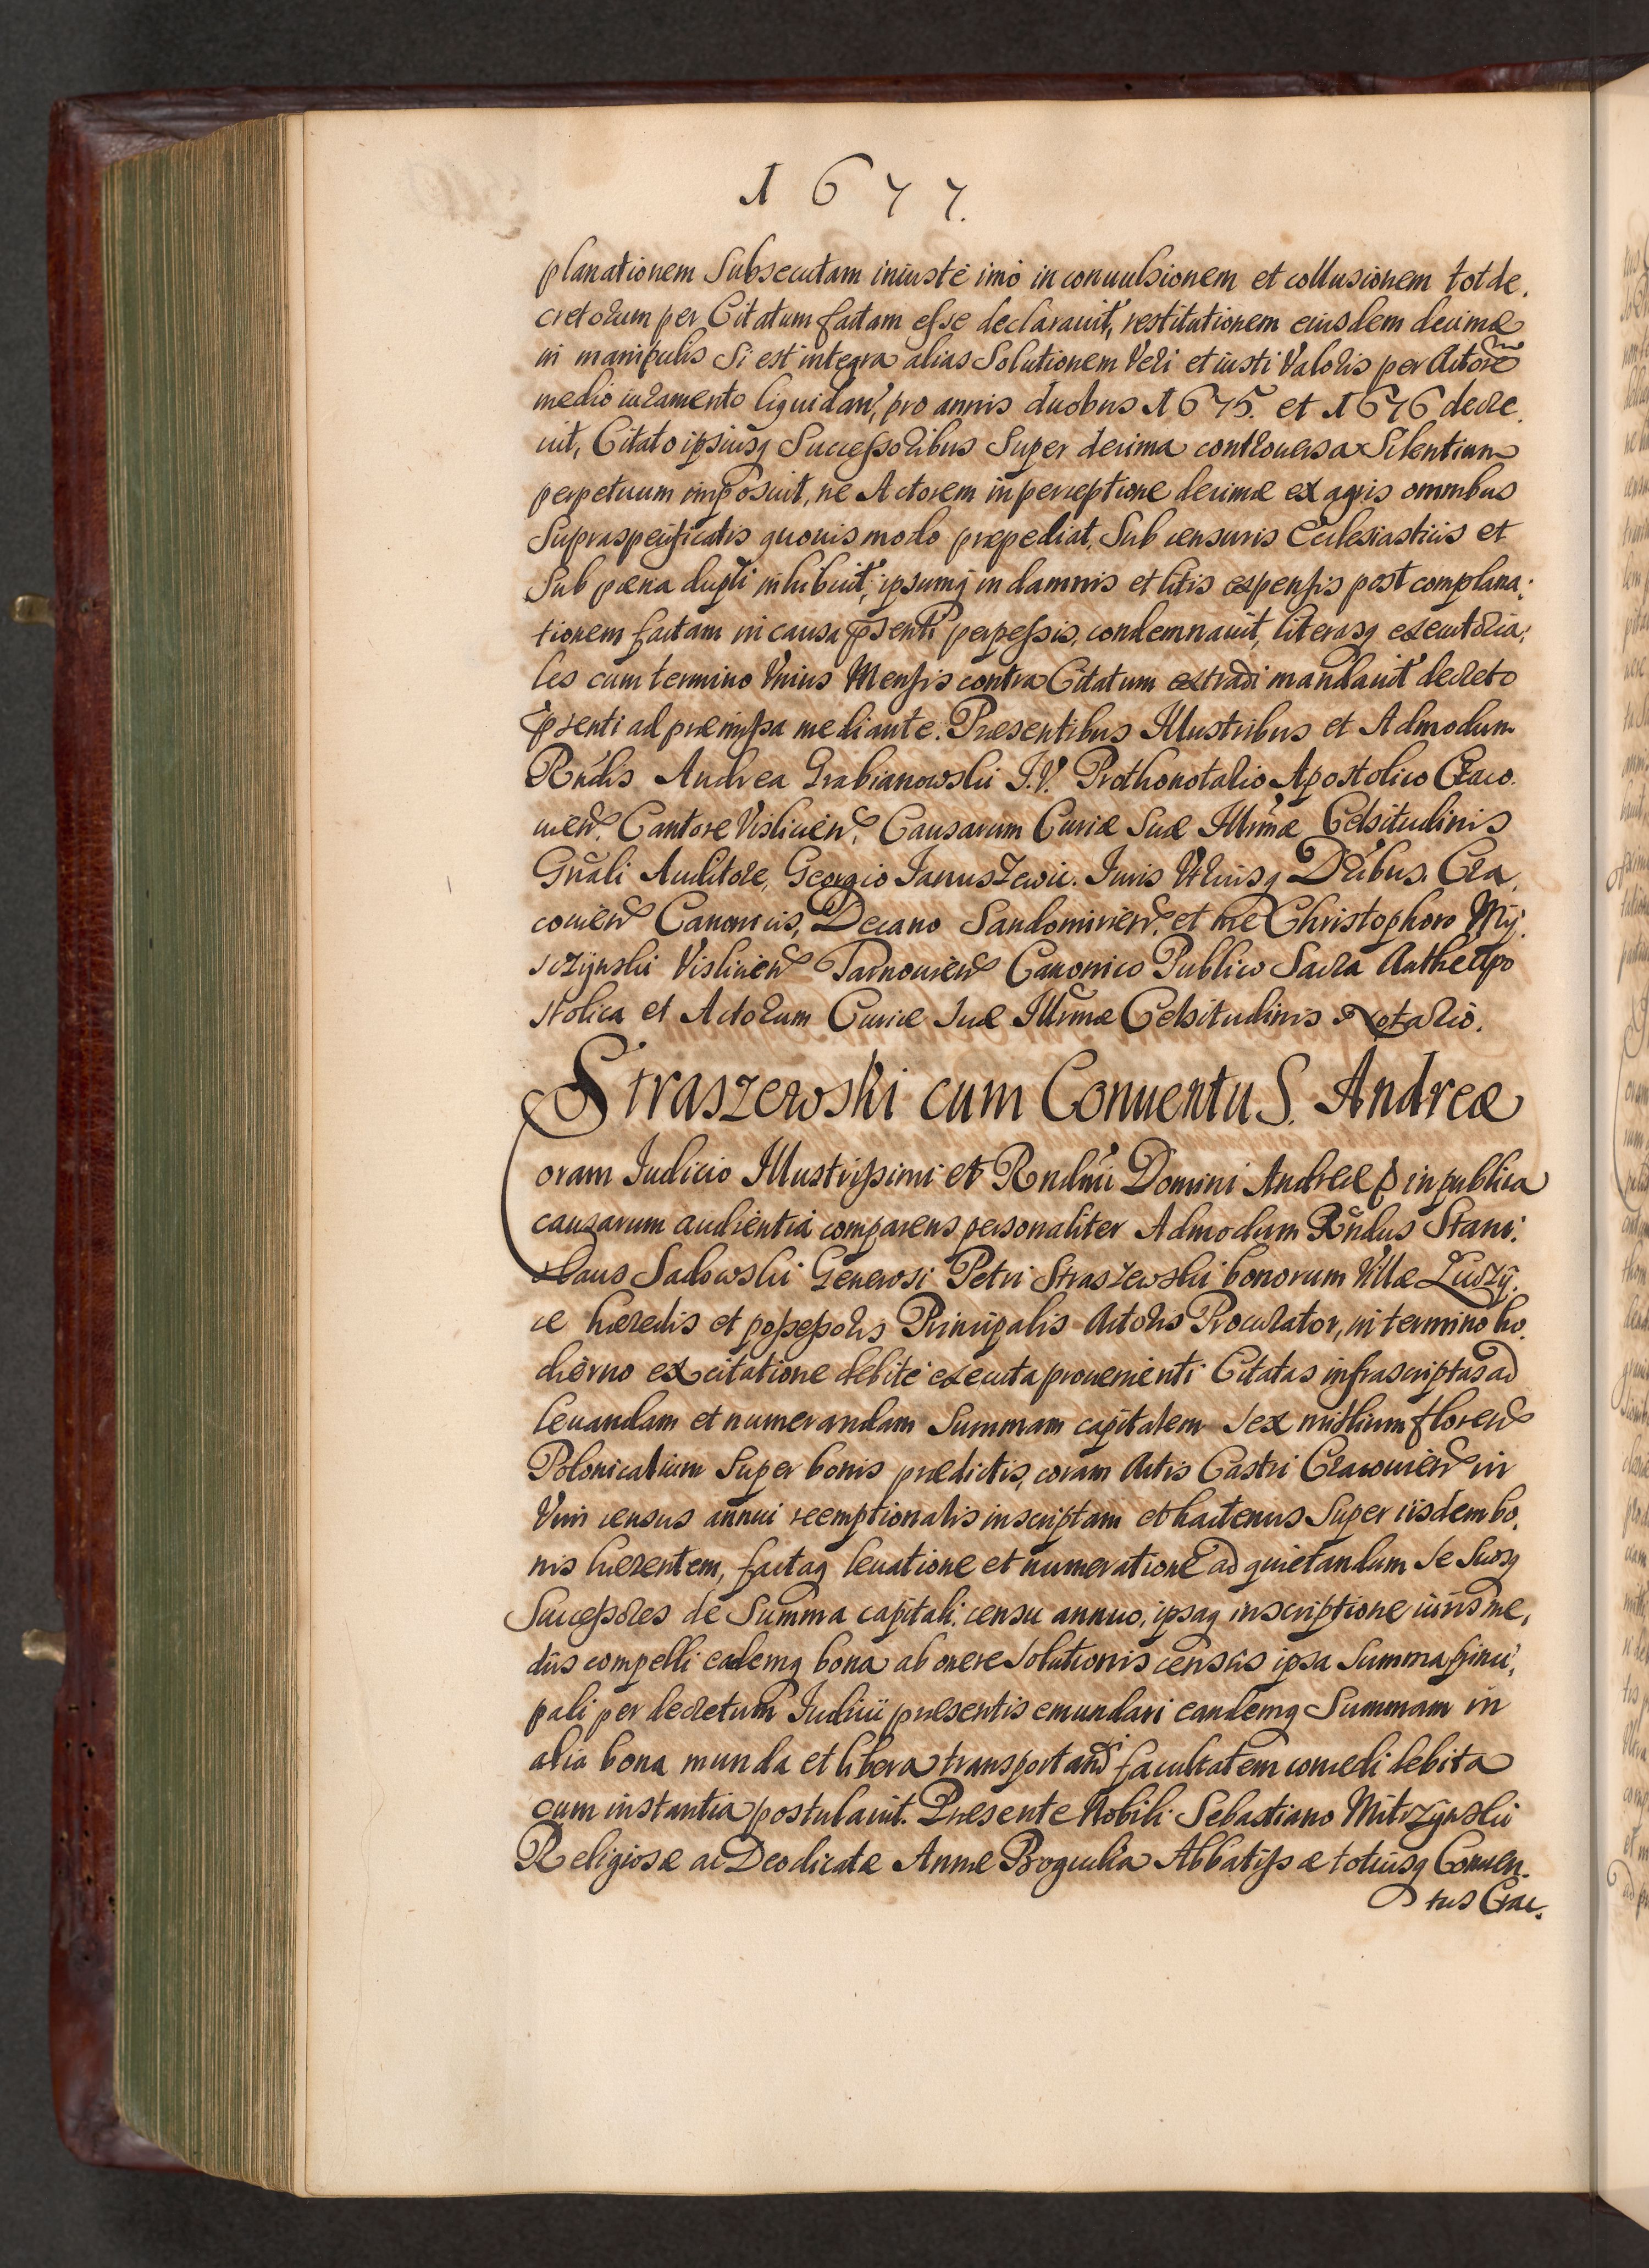 1677.
planationem Subsecutam iniustè imò in conuulsionem et collusionem tot de,
cretorum per Citatum factam esse declarauit, restitutionem eiusdem decimæ
in manipulis Si est integra alias Solutionem Veri et iusti Valoris per Actorē
medio iuramento liquidan, pro annis duobus 1675. et 1676 decre
uit, Citato ipsiusq Successoribus Super decima controuersa Silentium
perpetuum imposuit, ne Actorem in perceptione decimæ ex agris omnibus
Supraspecificatis quouis modo præpediat, Sub censuris Ecclesiasticis et
Sub pœna dupli inhibuit, ipsumq in damnis et litis expensis post complana,
tionem factam in causa psenti perpessis, condemnauit, literasq executoria,
les cum termino Vnius Mensis contra Citatum extradi mandauit decreto
psenti ad præmissa mediante. Præsentibus Illustribus et Admodum
Rndis Andrea Grabianowski I.V. Prothonotario Apostolico Craco.
uien. Cantore Vislicien, Causarum Curiæ Suæ Illrmæ Celsitudinis
Gnali Auditore, Georgio Januszewic. Juris Vtriusq Dribus. Cra,
couien Canonicis, Decano Sandomirien. et me Christophoro Mij.
sczijnski Vislicien Tarnouien Canonico Publico Sacra Authe Apo
stolica et Actorum Curiæ Suæ Illrmæ Celsitudinis Notario.
Straszewski cum Conuentu S. Andreæ
Coram Iudicio Illustrissimi et Rndmi Domini Andreæ p in publica
causarum audientia comparens personaliter Admodum Rndus Stani.
slaus Sadowski Generosi Petri Straszewski bonorum Villæ
ce hæredis et possessoris Principalis Actoris Procurator, in termino ho.
dierno ex citatione debitè executa prouenienti Citatas infrascriptas ad
leuandam et numerandam Summam capitalem sex millium floren
Polonicalium Super bonis prædictis, coram Actis Castri Cracouien in
Vim census annui reemptionalis inscriptam et hactenus Super iisdem bo,
nis hærentem, factaq leuatione et numeratione ad quietandum se Suosq
Successores de Summa capitali, censu annuo, ipsaq inscriptione iuris me,
diis compelli eademq bona ab onere solutionis census ipsa Summa princi,
pali per decretum Iudicii præsentis emundari eandemq Summam in
alia bona munda et libera transportandi facultatem concedi debita
cum instantia postulauit. Præsente Nobili Sebastiano Mitrzijnski
Religiosæ ac Deodicatæ Annæ Abbatissæ totiusq Conuen.
tus Crac.